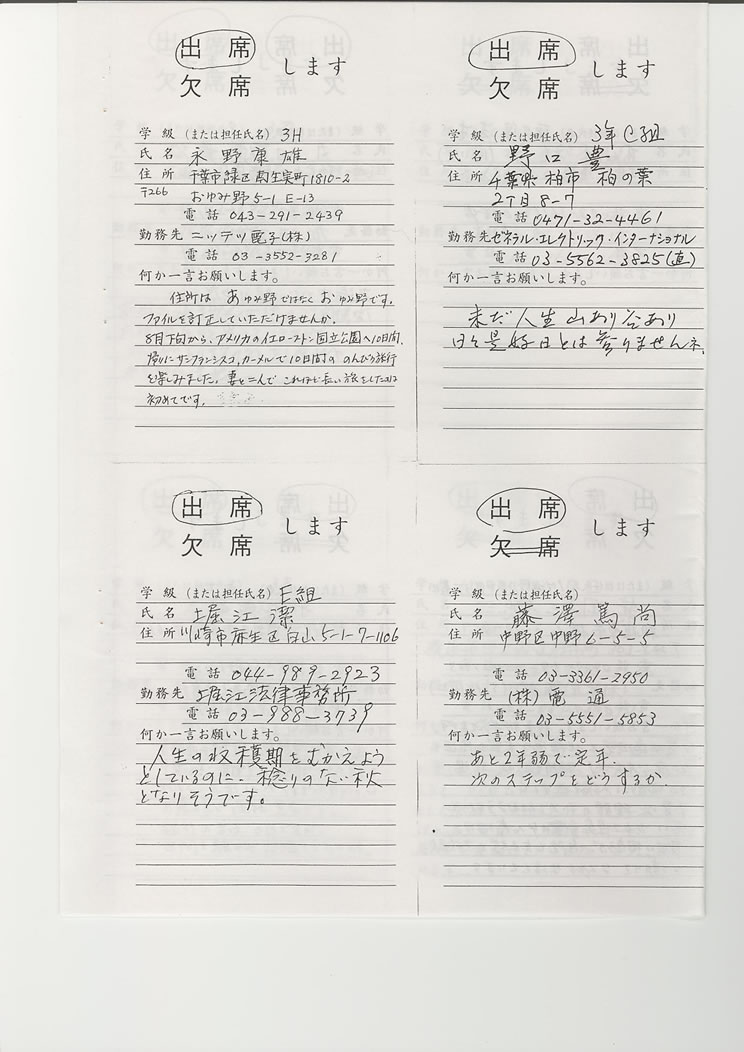 出席
欠席
します
学級（または担任氏名） 3H
氏名 永野康雄
住所 千葉市緑区 生実町1810-2
〒266 おゆみ野5-1 E-13
電話 043-291-2439
勤務先 ニッテツ電子(株)
電話 03-3552-3281
何か一言お願いします。
住所は あゆみ野ではなく おゆみ野です。
ファイルを訂正していただけませんか。
8月下旬から、アメリカのイエローストン国立公園へ10日間、
帰りにサンフランシスコ、カーメルで10日間の のんびり旅行
を楽しみました。妻と二人で これほど長い旅をしたのは
初めてです。
出席
欠席
します
学級（または担任氏名） 3年C組
氏名 野口豊
住所 千葉県柏市 柏の葉
2丁目8-7
電話 0471-32-4461
勤務先 ゼネラル・エレクトリック・インターナショナル
電話 03-5562-3825(直)
何か一言お願いします。
未だ人生山あり谷あり
日々是好日とは参りませんネ.
出席
欠席
します
学級（または担任氏名） E組
氏名 堀江潔
住所 川崎市麻生区白山5-1-7-1106
電話 044-989-2923
勤務先 堀江法律事務所
電話 03-988-3739
何か一言お願いします。
人生の収穫期をむかえよう
としているのに、稔りのない秋
となりそうです。
出席
欠席
します
学級（または担任氏名）
氏名 藤澤篤尚
住所 中野区中野6-5-5
電話 03-3361-2950
勤務先 (株)電通
電話 03-5551-5853
何か一言お願いします。
あと2年弱で定年.
次のステップをどうするか.